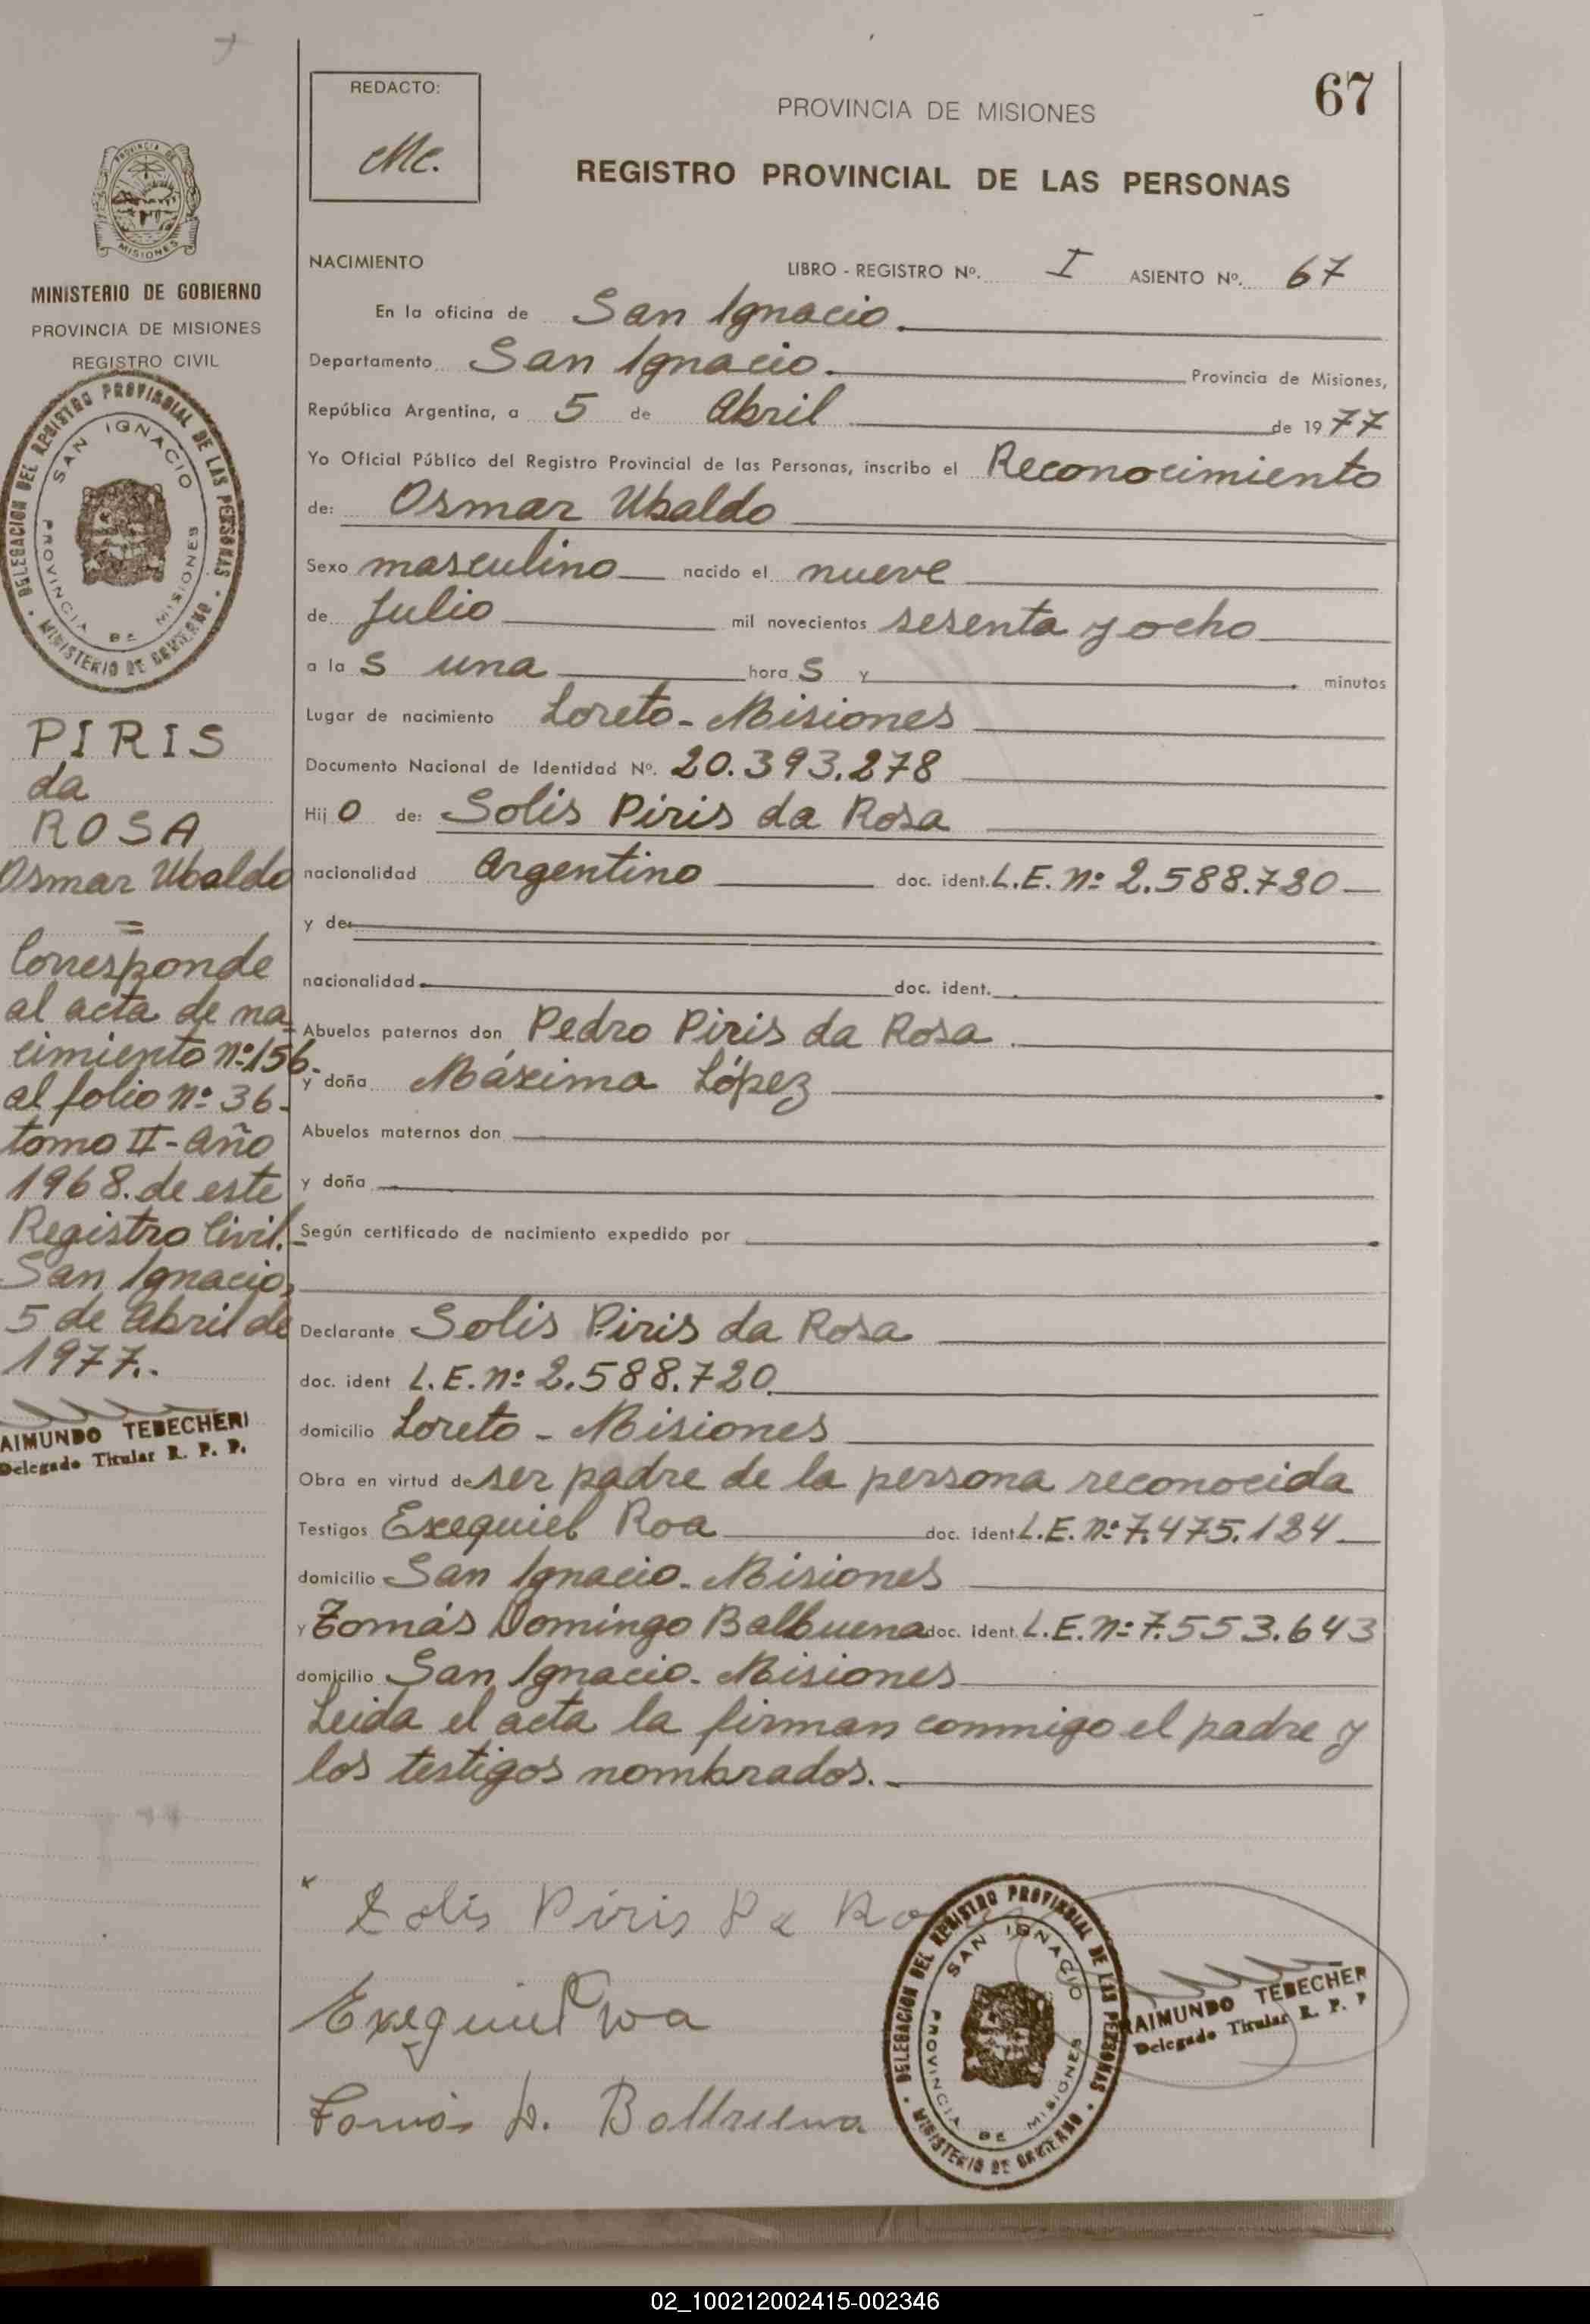 67
REDACTO:
Mc.
PROVINCIA DE MISIONES
REGISTRO PROVINCIAL DE LAS PERSONAS
PROVINCIA DE
MISIONES
MINISTERIO DE GOBIERNO
PROVINCIA DE MISIONES
REGISTRO CIVIL
DELEGACION DEL REGISTRO PROVINCIAL DE LAS PERSONAS
SAN IGNACIO
PROVINCIA DE MISIONES
MINISTERIO DE GOBIERNO
PIRIS
da
ROSA
Osmar Ubaldo
=
Corresponde
al acta de na-
cimiento nº 156.
al folio nº 36-
tomo II - año
1968. de este
Registro Civil.-
San Ignacio,
5 de Abril de
1977.-
AIMUNDO TEBECHERI
Delegado Titular R. P. P.
NACIMIENTO LIBRO - REGISTRO Nº. I ASIENTO Nº. 67
En la oficina de San Ignacio.
Departamento San Ignacio. Provincia de Misiones,
República Argentina, a 5 de Abril de 1977
Yo Oficial Público del Registro Provincial de las Personas, inscribo el Reconocimiento
de: Osmar Ubaldo
Sexo masculino nacido el nueve
de Julio mil novecientos sesenta y ocho
a la s una hora s y minutos
Lugar de nacimiento Loreto - Misiones
Documento Nacional de Identidad Nº. 20.393.278
Hij o de: Solis Piris da Rosa
nacionalidad Argentino doc. ident. L.E. nº 2.588.720
y de:
nacionalidad doc. ident.
Abuelos paternos don Pedro Piris da Rosa
y doña Máxima López
Abuelos maternos don
y doña
Según certificado de nacimiento expedido por
Declarante Solis Piris da Rosa
doc. ident L.E. nº 2.588.720.
domicilio Loreto - Misiones
Obra en virtud de ser padre de la persona reconocida
Testigos Exequiel Roa doc. ident L.E. nº 7.475.184
domicilio San Ignacio - Misiones
y Tomás Domingo Balbuena doc. ident. L.E. nº 7.553.643
domicilio San Ignacio - Misiones
Leida el acta la firman conmigo el padre y
los testigos nombrados.-
Solis Piris Da Rosa
Exequiel Roa
Tomás D. Balbuena
DELEGACION DEL REGISTRO PROVINCIAL DE LAS PERSONAS
SAN IGNACIO
PROVINCIA DE MISIONES
MINISTERIO DE GOBIERNO
RAIMUNDO TEBECHER
Delegado Titular R. P. P
02_100212002415-002346